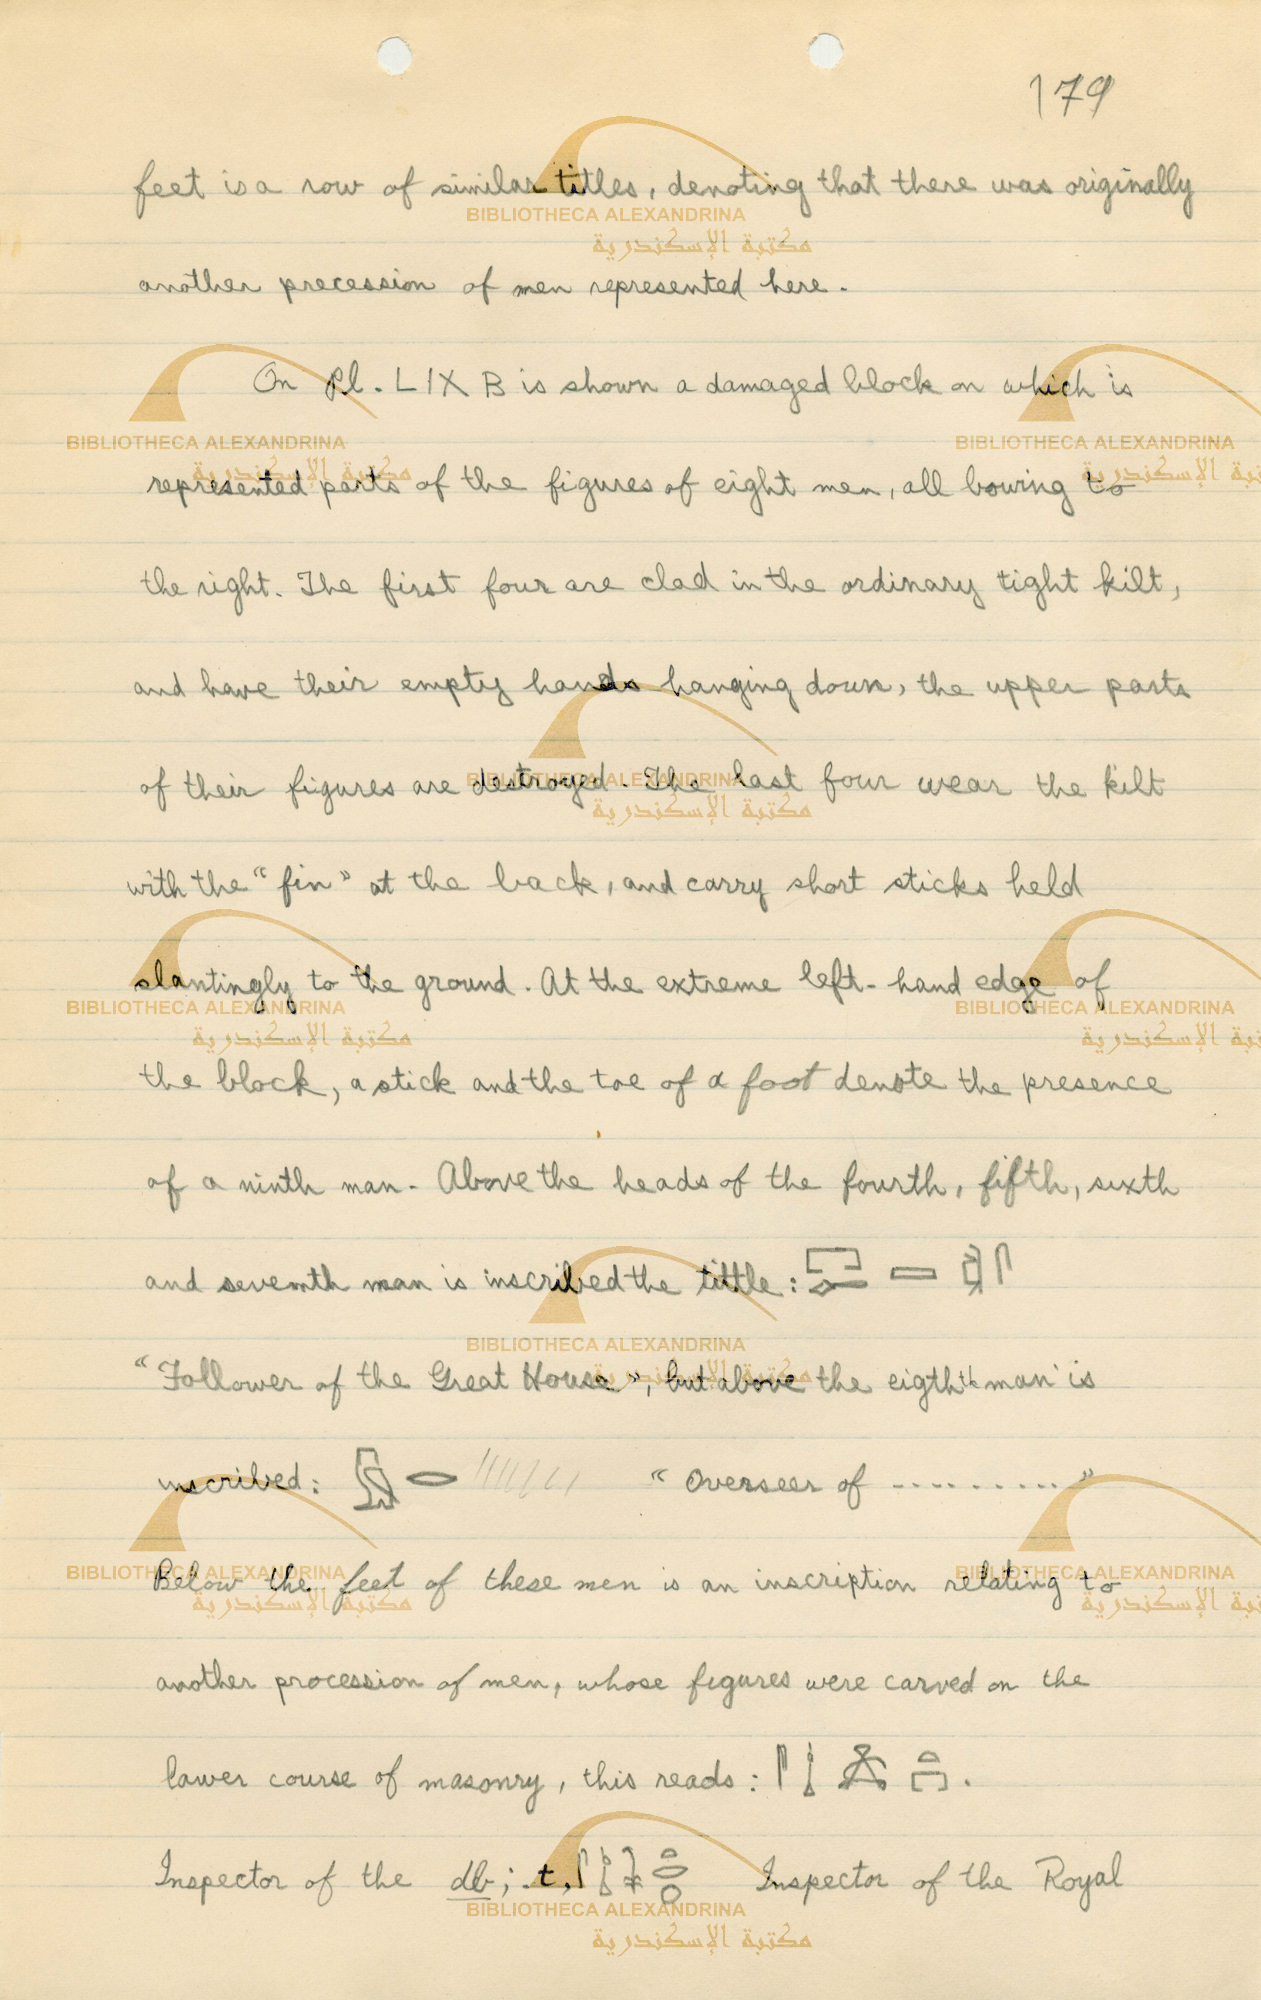 179
feet is a row of similar titles, denoting that there was originally
another precession of men represented here.
On Pl. LIX B is shown a damaged block on which is
represented parts of the figures of eight men, all bowing to
the right. The first four are clad in the ordinary tight kilt,
and have their empty hands hanging down, the upper parts
of their figures are destroyed. The last four wear the kilt
with the "fin" at the back, and carry short sticks held
slantingly to the ground. At the extreme left-hand edge of
the block, a stick and the toe of a foot denote the presence
of a ninth man. Above the heads of the fourth, fifth, sixth
and seventh man is inscribed the tittle:
"Follower of the Great House", but above the eigthth man is
inscribed: "Overseer of .........."
Below the feet of these men is an inscription relating to
another procession of men, whose figures were carved on the
lower course of masonry, this reads:
Inspector of the db; .t, Inspector of the Royal
BIBLIOTHECA ALEXANDRINA
مكتبة الإسكندرية